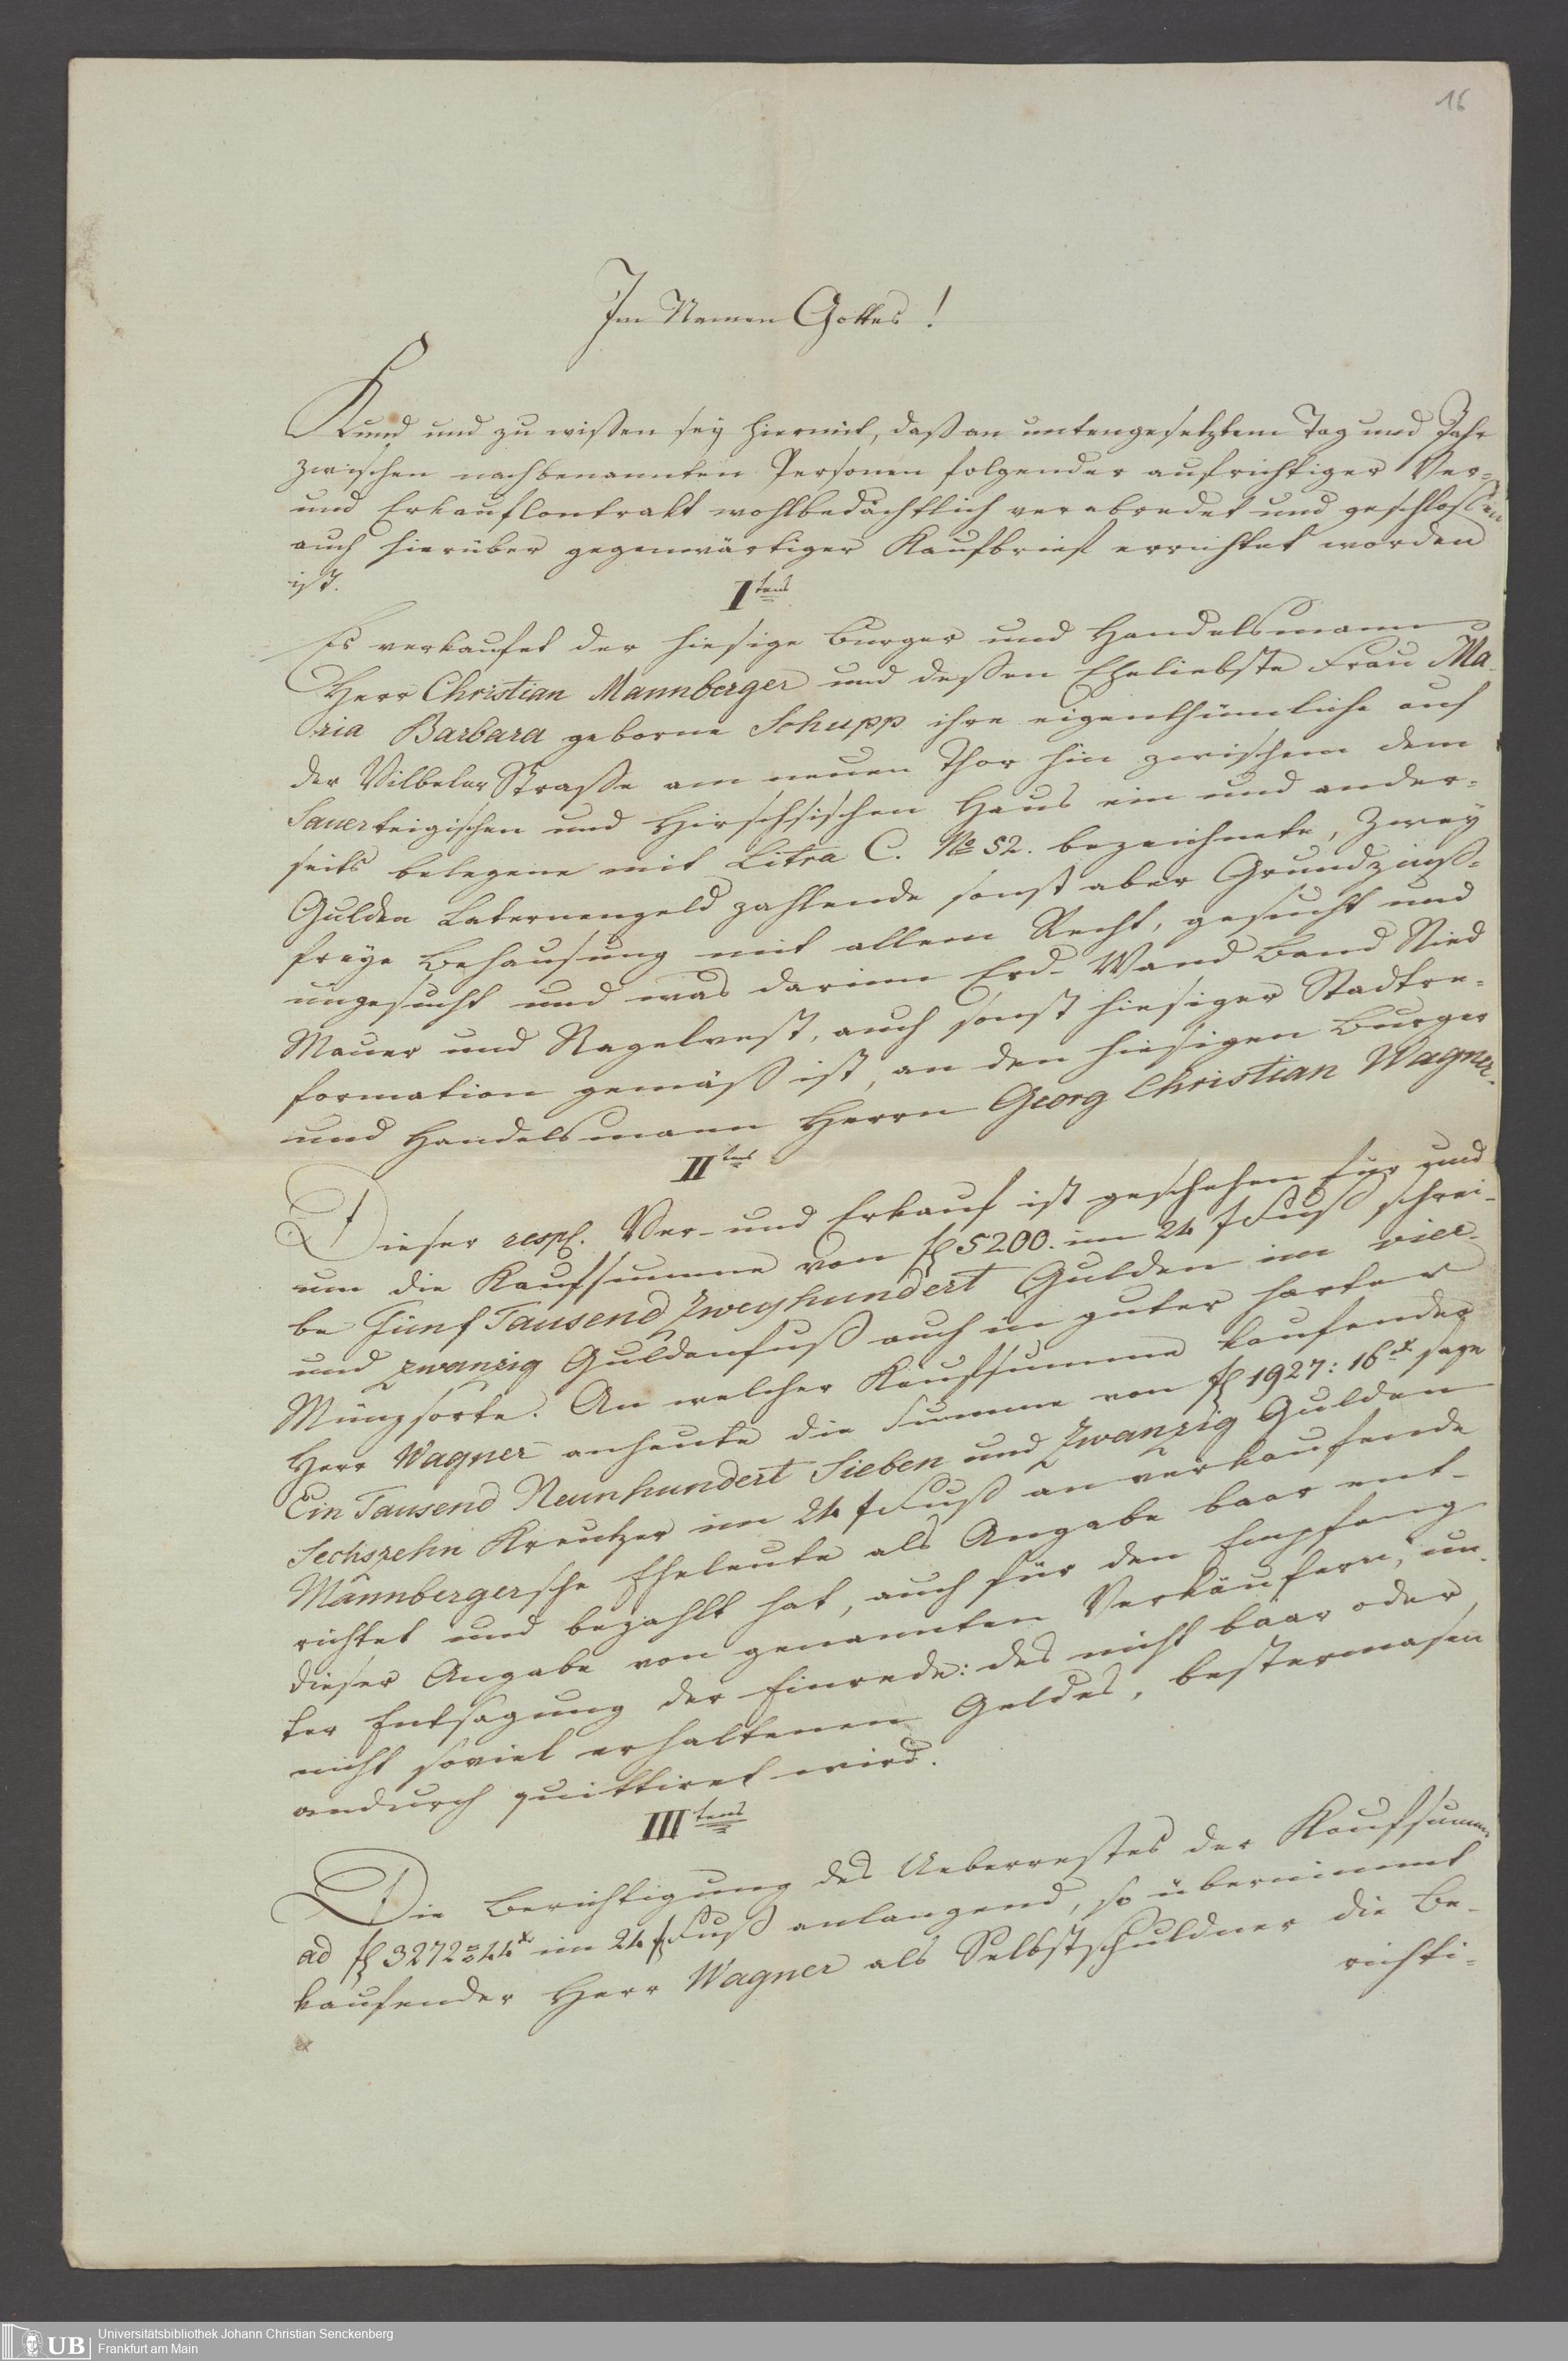 16
Im Namen Gottes!
Kund und zu wißen sey hiermit, daß an untengesetztem Tag und Jahr
zwischen nachbenannten Personen folgender aufrichtiger Ver-
und Erkaufcontrakt wohlbedächtlich verabredet und geschloßen
auch hierüber gegenwärtiger Kaufbrief errichtet worden
ist.
I tens
Es verkaufet der hiesige Burger und Handelsmann
Herr Christian Mannberger und deßen Eheliebste Frau Ma-
ria Barbara geborne Schupp ihre eigenthümliche auf
der Vilbeler Straße am neuen Thor hin zwischen dem
Sauerteigischen und Hirschischen Haus ein und ander-
seits belegene mit Litra C. No 52. bezeichnete, Zwey
Gulden Laternengeld zahlende sonst aber Grundzinß-
freye Behausung mit allem Recht, gesucht und
ungesucht und was darinn Erd- Wand Band Nied
Mauer und Nagelvest, auch sonst hiesiger Stadtre-
formation gemäß ist, an den hiesigen Burger
und Handelsmann Herrn Georg Christian Wagner.
II tens
Dieser resp. Ver- und Erkauf ist geschehen für und
um die Kaufsumme von fl 5200. im 24 f Fuß schrei-
be Fünf Tausend Zweyhundert Gulden im vier-
und zwanzig Guldenfuß auch in guter harter
Münzsorte. An welcher Kaufsumme kaufender
Herr Wagner anheute die Summe von fl 1927: 16 x sage
Ein Tausend Neunhundert Sieben und Zwanzig Gulden
Sechszehn Kreutzer im 24 f Fuß an verkaufende
Mannbergersche Eheleute als Angabe baar ent-
richtet und bezahlt hat, auch für den Empfang
dieser Angabe von genannten Verkäufern, un-
ter Entsagung der Einrede: des nicht baar oder
nicht soviel erhaltenen Geldes, bestermasen
andurch quittiret wird.
III tens
Die Berichtigung des Ueberrestes der Kaufsumme
ad fl 3272 = 44 x im 24 f Fuß anlangend, so übernimmt
kaufender Herr Wagner als Selbstschuldner die Be-
richti-
UB
Universitätsbibliothek Johann Christian Senckenberg
Frankfurt am Main